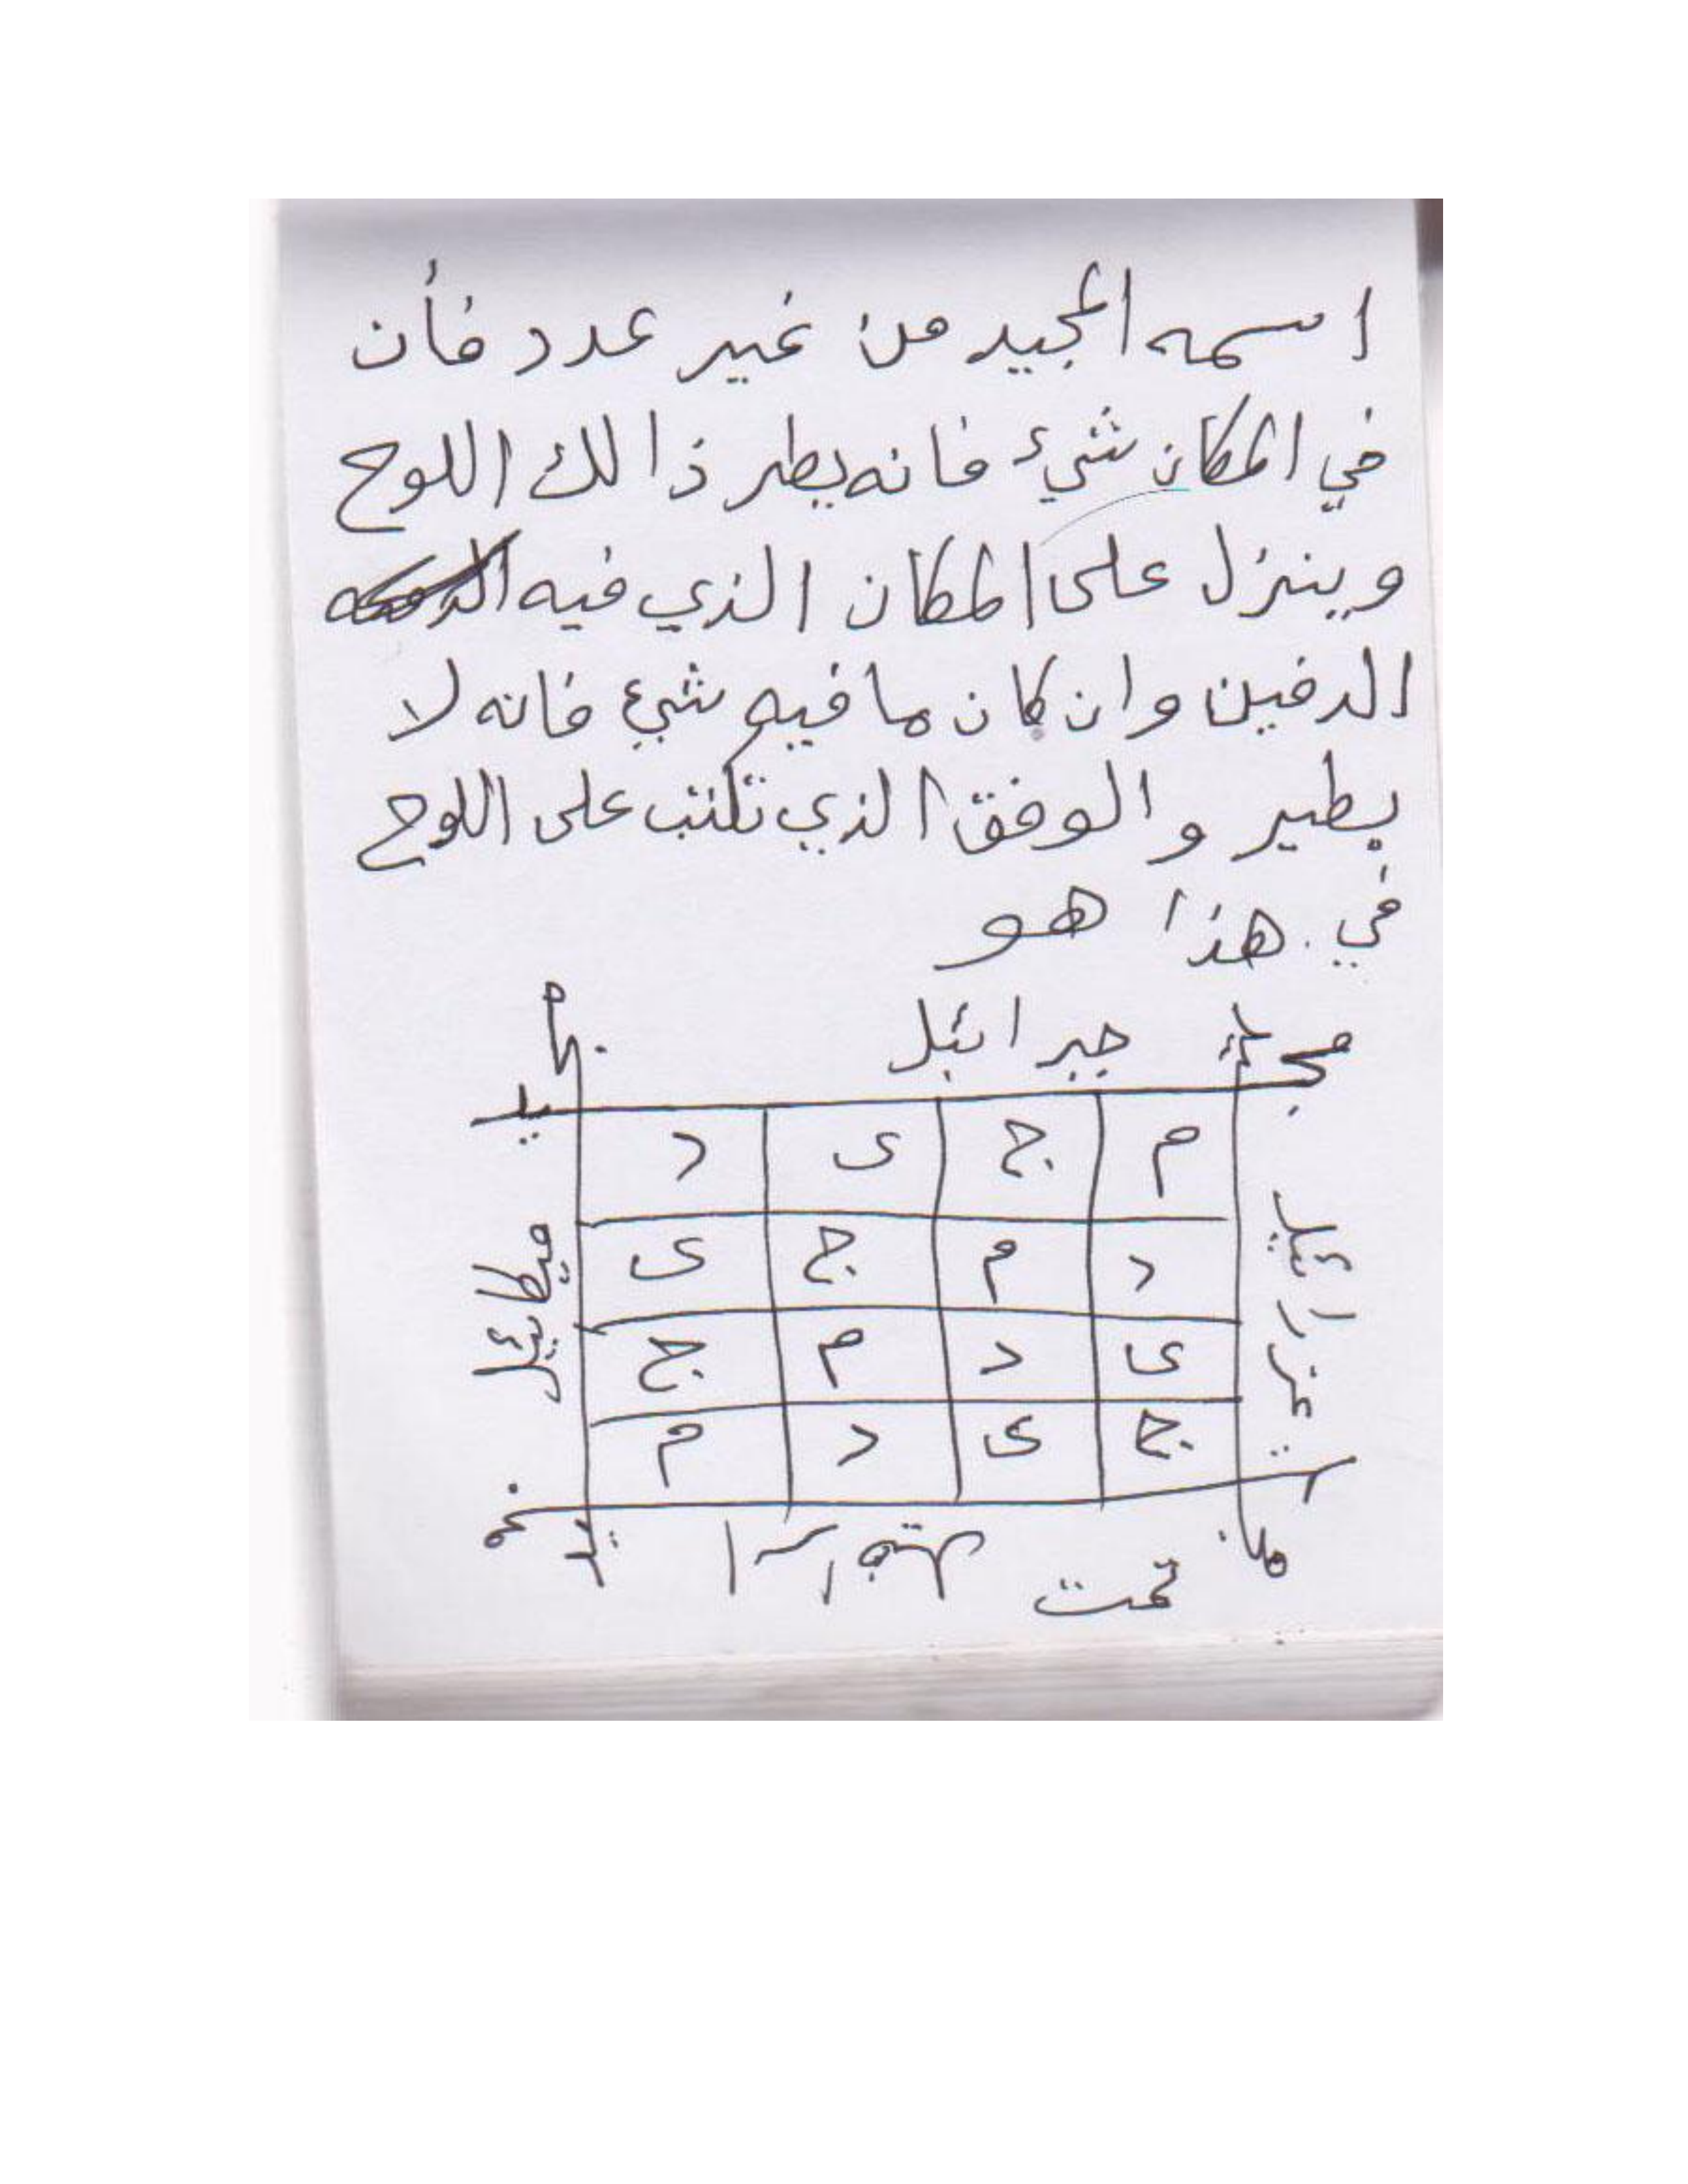 اسمه المجيد من غير عدد فأن
في المكان شيء فانه يطر ذا لك اللوح
وينزل على المكان الذي فيه
الدفين وان كان ما فيه شيء فانه لا
يطير والوفق الذي تكتب على اللوح
في هذا هو
جبرائيل
م ج ى د
د م ج ى
ى د م ج
ج ى د م
عزرائيل
ميكائيل
تمت